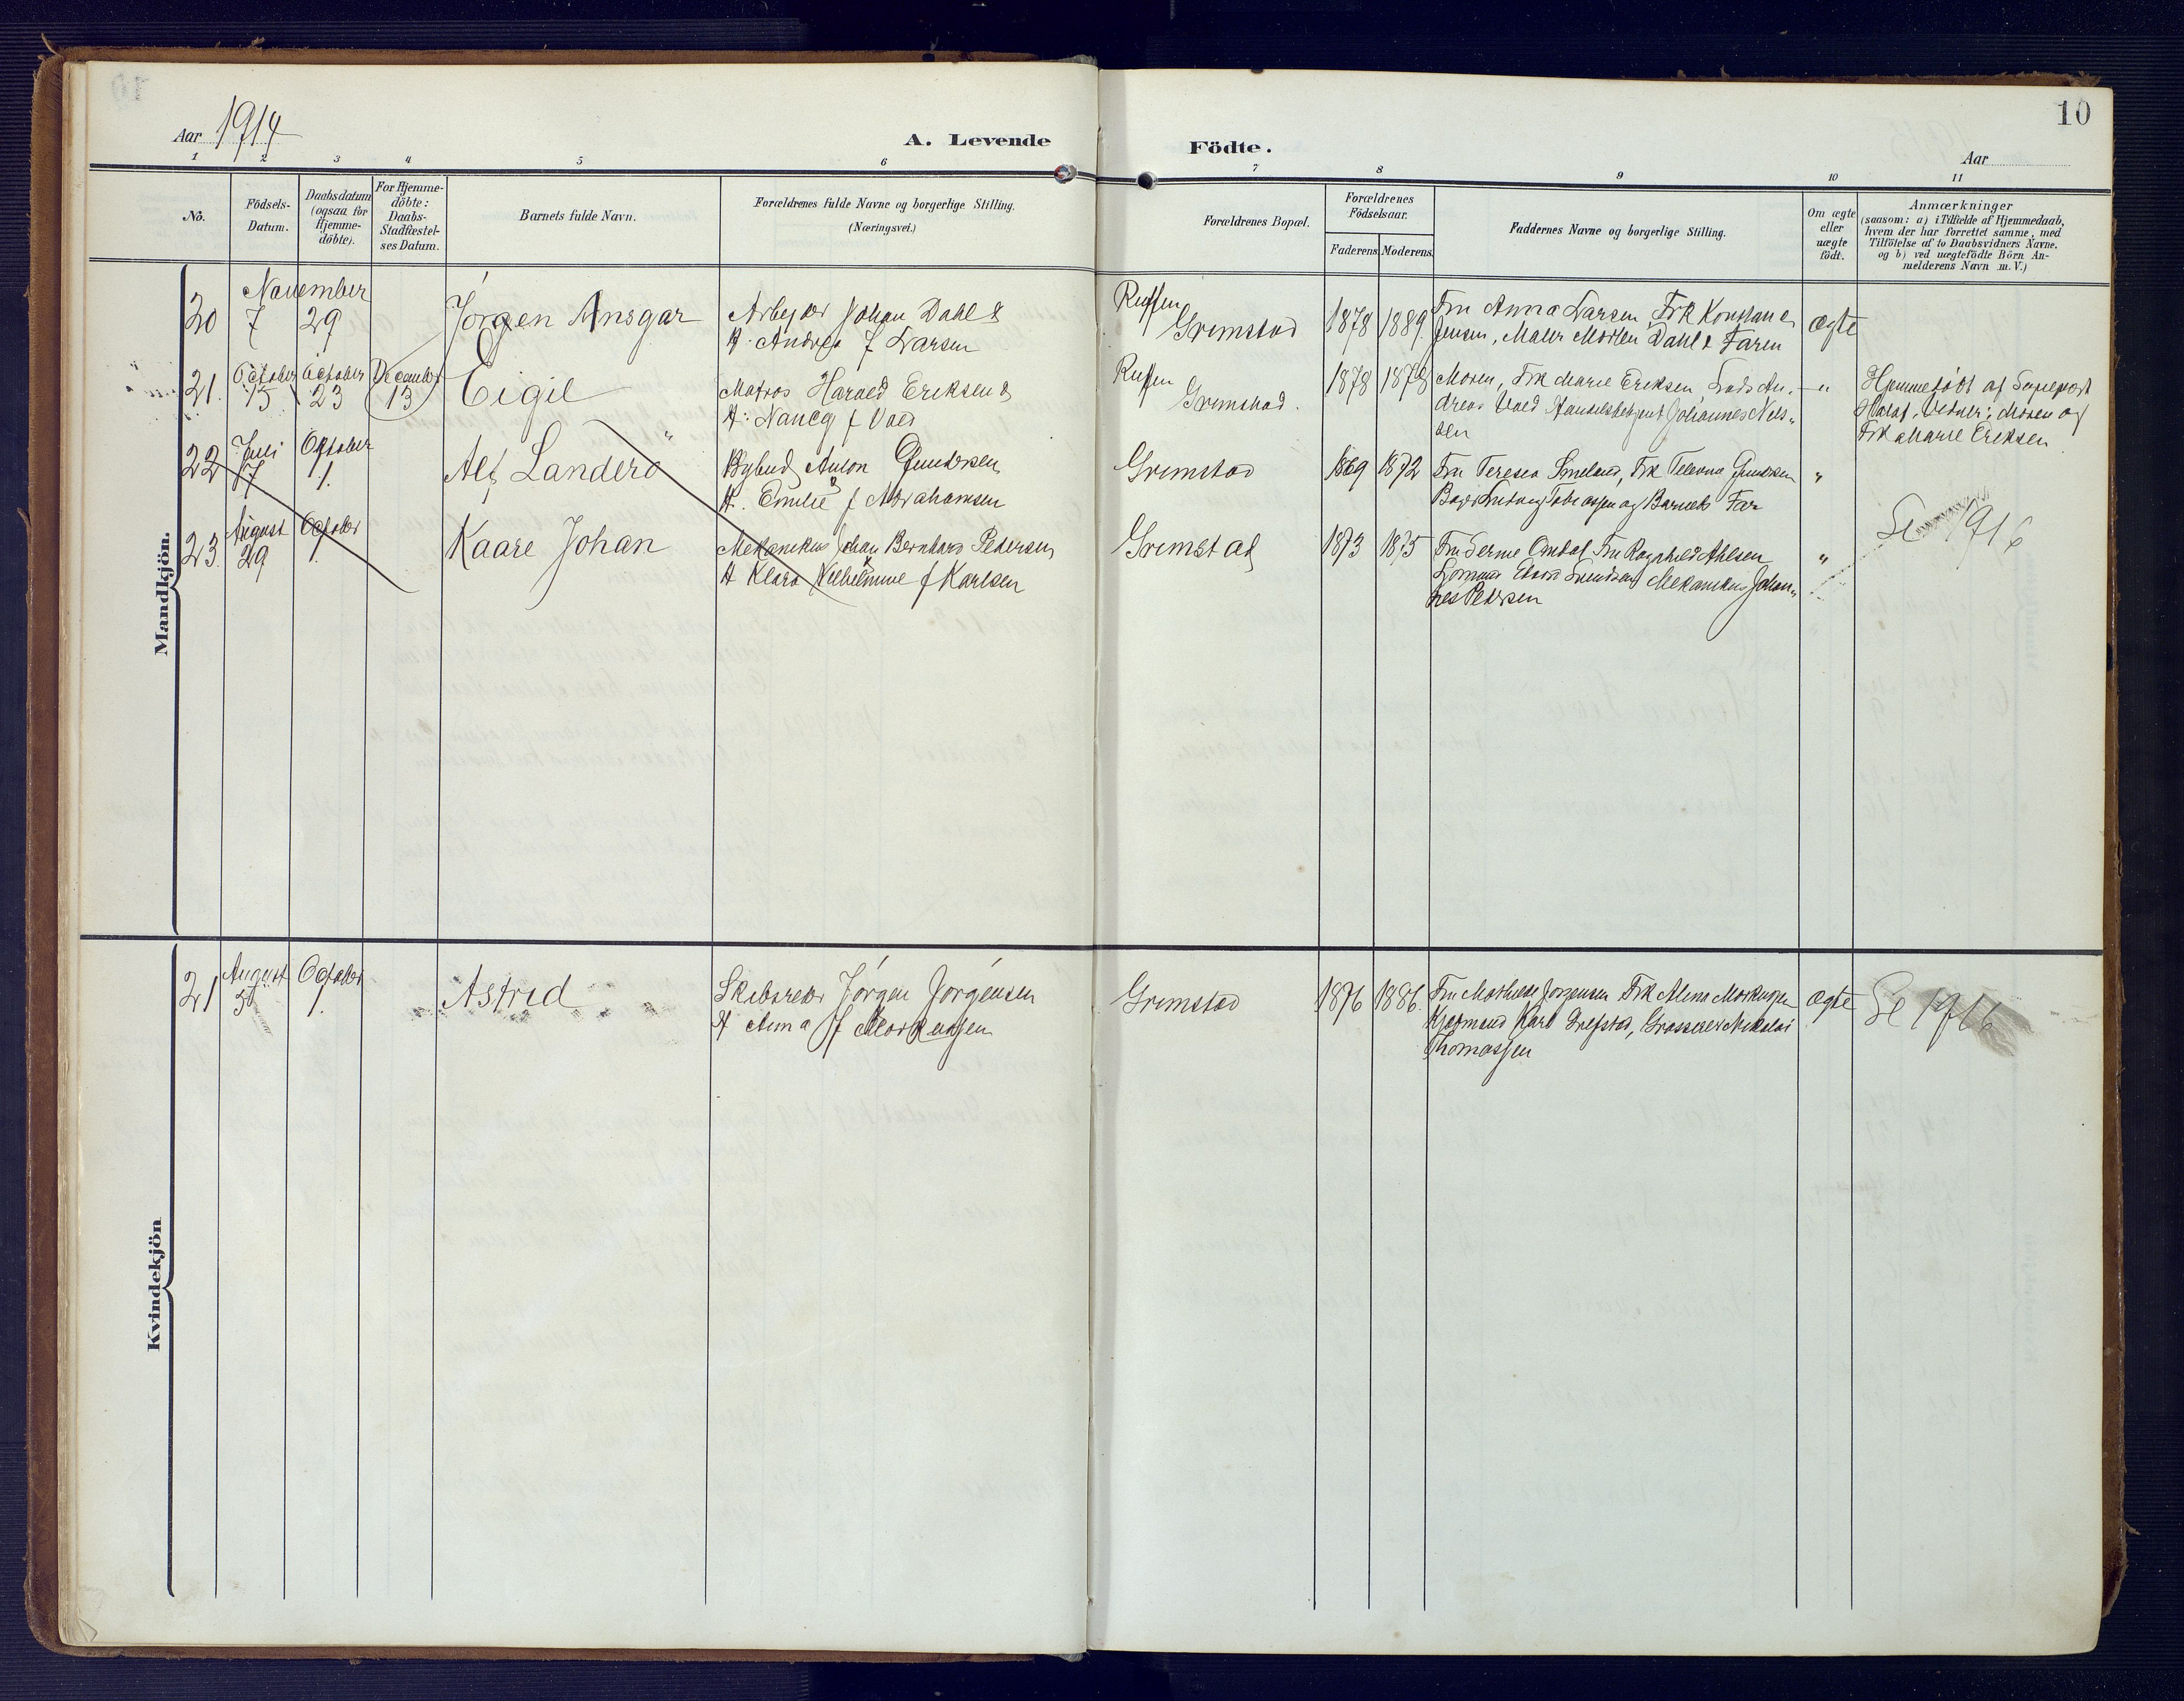 Aar 1914
A. Levende
Födte.
10
Aar
1 2 3 4 5 6 7 8 9 10 11
No.
Födsels-
Datum.
Daabsdatum
(ogsaa for
Hjemme-
döbte).
For Hjemme-
döbte:
Daabs-
Stadfæstel-
ses Datum.
Barnets fulde Navn.
Forældrenes fulde Navne og borgerlige Stilling.
(Næringsvei.)
Forældrenes Bopæl.
Forældrenes
Födselsaar.
Faderens Moderens
Faddernes Navne og borgerlige Stilling.
Om ægte
eller
uægte
födt.
Anmærkninger
(saasom: a) i Tilfælde af Hjemmedaab,
hvem der har forrettet samme, med
Tilföielse af to Daabsvidners Navne.
og b) ved uægtefödte Börn An-
melderens Navn m. V.)
Mandkjön.
20
November
7
29
Jörgen Ansgar
Arbejder Johan Dahl &
H. Andrea f Larsen
Grimstad
1878
1889.
Fru Anna Larsen, Frk Konstance
Jensen, Maler Morten Dahl & Faren
ægte
21.
October
15
October
23
December
13
Eigil
Matros Harald Eriksen &
H: Nancy f Voed
Grimstad.
1878
1878
Moren, Frk Marie Eriksen
Johannes Niel-
sen
"
Hjemmedöbt af
Moren og
Frk Marie Eriksen
22
Juli
17
October
1.
Alf Landerö
Bybud Anton Gundersen
& H. Emilie f Abrahamsen
Grimstad
1869
1872
Fru Teresea Smeland, Frk Gundersen
Ludvig Tobiassen og Barnets Far
"
23.
August
29
October
1.
Kaare Johan
Mekanikus Johan Bernhard Pedersen
& H Klara Vilhelmine f Karlsen
Grimstad
1873
1875
Omdal, Fru Ragnhild Ahlsen
Svendsen, Mekanikus Johan-
nes Pedersen
"
Se 1916
Kvindekjön
21
August
31
October
1.
Astrid
Skibsreder Jörgen Jörgensen
H Anna f Morkussen
Grimstad
1876
1886.
Fru Mathilde Jorgensen Frk Alma Morkussen
Kjøpmand Karl Grefstad, Grosserer Nikolai
Thomassen
ægte
Se 1916